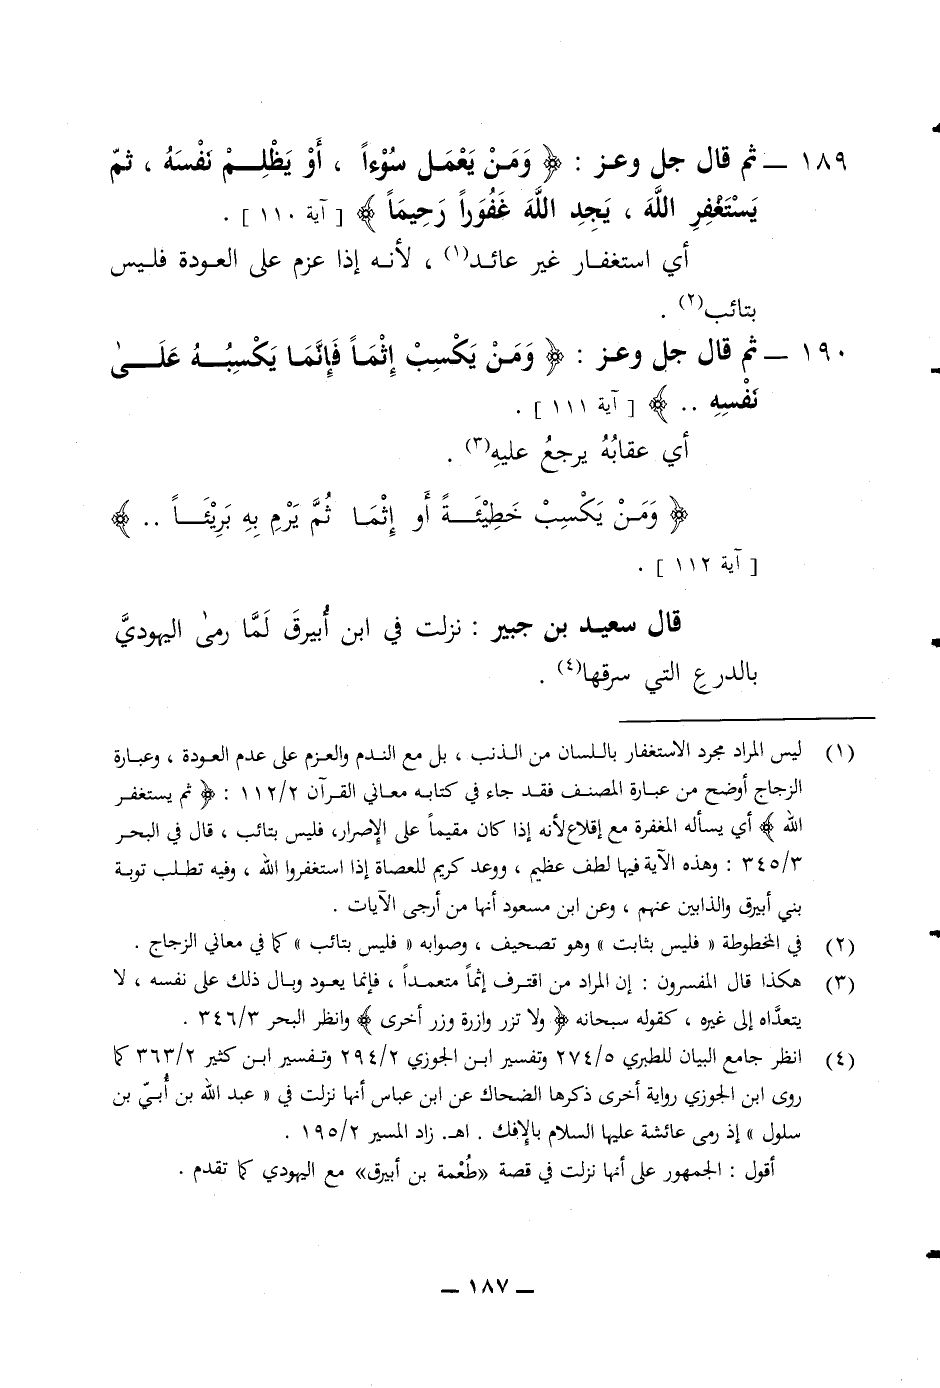 ١٨٩ ـ ثم قال جل وعـز : ﴿ وَمَنْ يَعْمَل سُوْءاً ، أَوْ يَظْلِـمْ نَفْسَهُ ، ثمّ
يَسْتَغْفِرِ اللَّهَ ، يَجِدِ اللَّهَ غَفُوَراً رَحِيمَاً ﴾ [ آية ١١٠ ] .
أي استغفـار غير عائـد(١) ، لأنـه إذا عزم على العـودة فلـيس
بتائب(٢) .
١٩٠ ـ ثم قال جل وعـز : ﴿ وَمَـنْ يَكْسِبْ إِثْمَـاً فَإِنَّمَـا يَكْسِبُـهُ عَلَـىٰ
نَفْسِهِ .. ﴾ [ آية ١١١ ] .
أي عقابُهُ يرجعُ عليهِ(٣) .
﴿ وَمَـنْ يَكْسِبْ خَطِيْئَـةً أَو إِثْمَـا ثُمَّ يَرْمِ بِهِ بَرِيْئَـاً .. ﴾
[ آية ١١٢ ] .
قال سعيـد بن جبير : نزلت في ابن أُبيرقَ لَمَّا رمىٰ اليهوديَّ
بالدرعِ التي سرقها(٤) .
(١) ليس المراد مجرد الاستغفار باللـسان من الـذنب ، بل مع النـدم والعـزم على عدم العودة ، وعبـارة
الزجاج أوضح من عبـارة المصنـف فقـد جاء في كتابـه معاني القـرآن ١١٢/٢ : ﴿ ثم يستغفـر
الله ﴾ أي يسأله المغفرة مع إقلاع لأنه إذا كان مقيماً على الإصرار، فليس بتائب ، قال في البحـر
٣٤٥/٣ : وهذه الآية فيها لطف عظيم ، ووعد كريم للعصاة إذا استغفروا الله ، وفيه تطلـب توبـة
بني أبيرق والذابين عنهم ، وعن ابن مسعود أنها من أرجى الآيات .
(٢) في المخطوطة « فليس بثابت » وهو تصحيف ، وصوابه « فليس بتائب » كما في معاني الزجاج .
(٣) هكذا قال المفسرون : إن المراد من اقتـرف إثماً متعمـداً ، فإنما يعـود وبـال ذلك على نفسه ، لا
يتعدَّاه إلى غيره ، كقوله سبحانه ﴿ ولا تزر وازرة وزر أخرى ﴾ وانظر البحر ٣٤٦/٣ .
(٤) انظر جامع البيان للطبري ٢٧٤/٥ وتفسير ابـن الجوزي ٢٩٤/٢ وتـفسير ابـن كثير ٣٦٣/٢ كما
روى ابن الجوزي رواية أخرى ذكرها الضحاك عن ابن عباس أنها نزلت في « عبد الله بن أُبـيّ بن
سلول » إذ رمى عائشة عليها السلام بالإفك . اهـ. زاد المسير ١٩٥/٢ .
أقول : الجمهور على أنها نزلت في قصة «طُعْمة بن أبيرق» مع اليهودي كما تقدم .
ـ ١٨٧ ـ